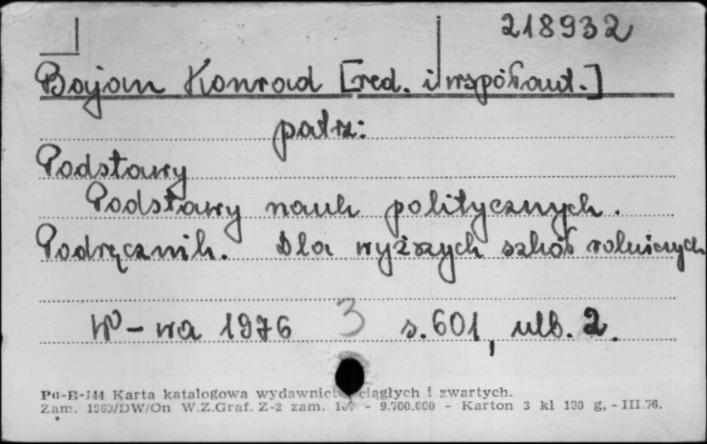 218932
Bojan Konrad [red. i współaut.]
patrz:
Podstawy
Podstawy nauk politycznych.
Podręcznik. Dla wyższych szkół rolniczych
W-wa 1976 3 s. 601, nlb. 2.
Pu-B-144 Karta katalogowa wydawnict ciągłych i zwartych.
Zam. 1963/DW/On W.Z.Graf. Z-2 zam. - 9.700.000 - Karton 3 kl 190 g, - III.76.